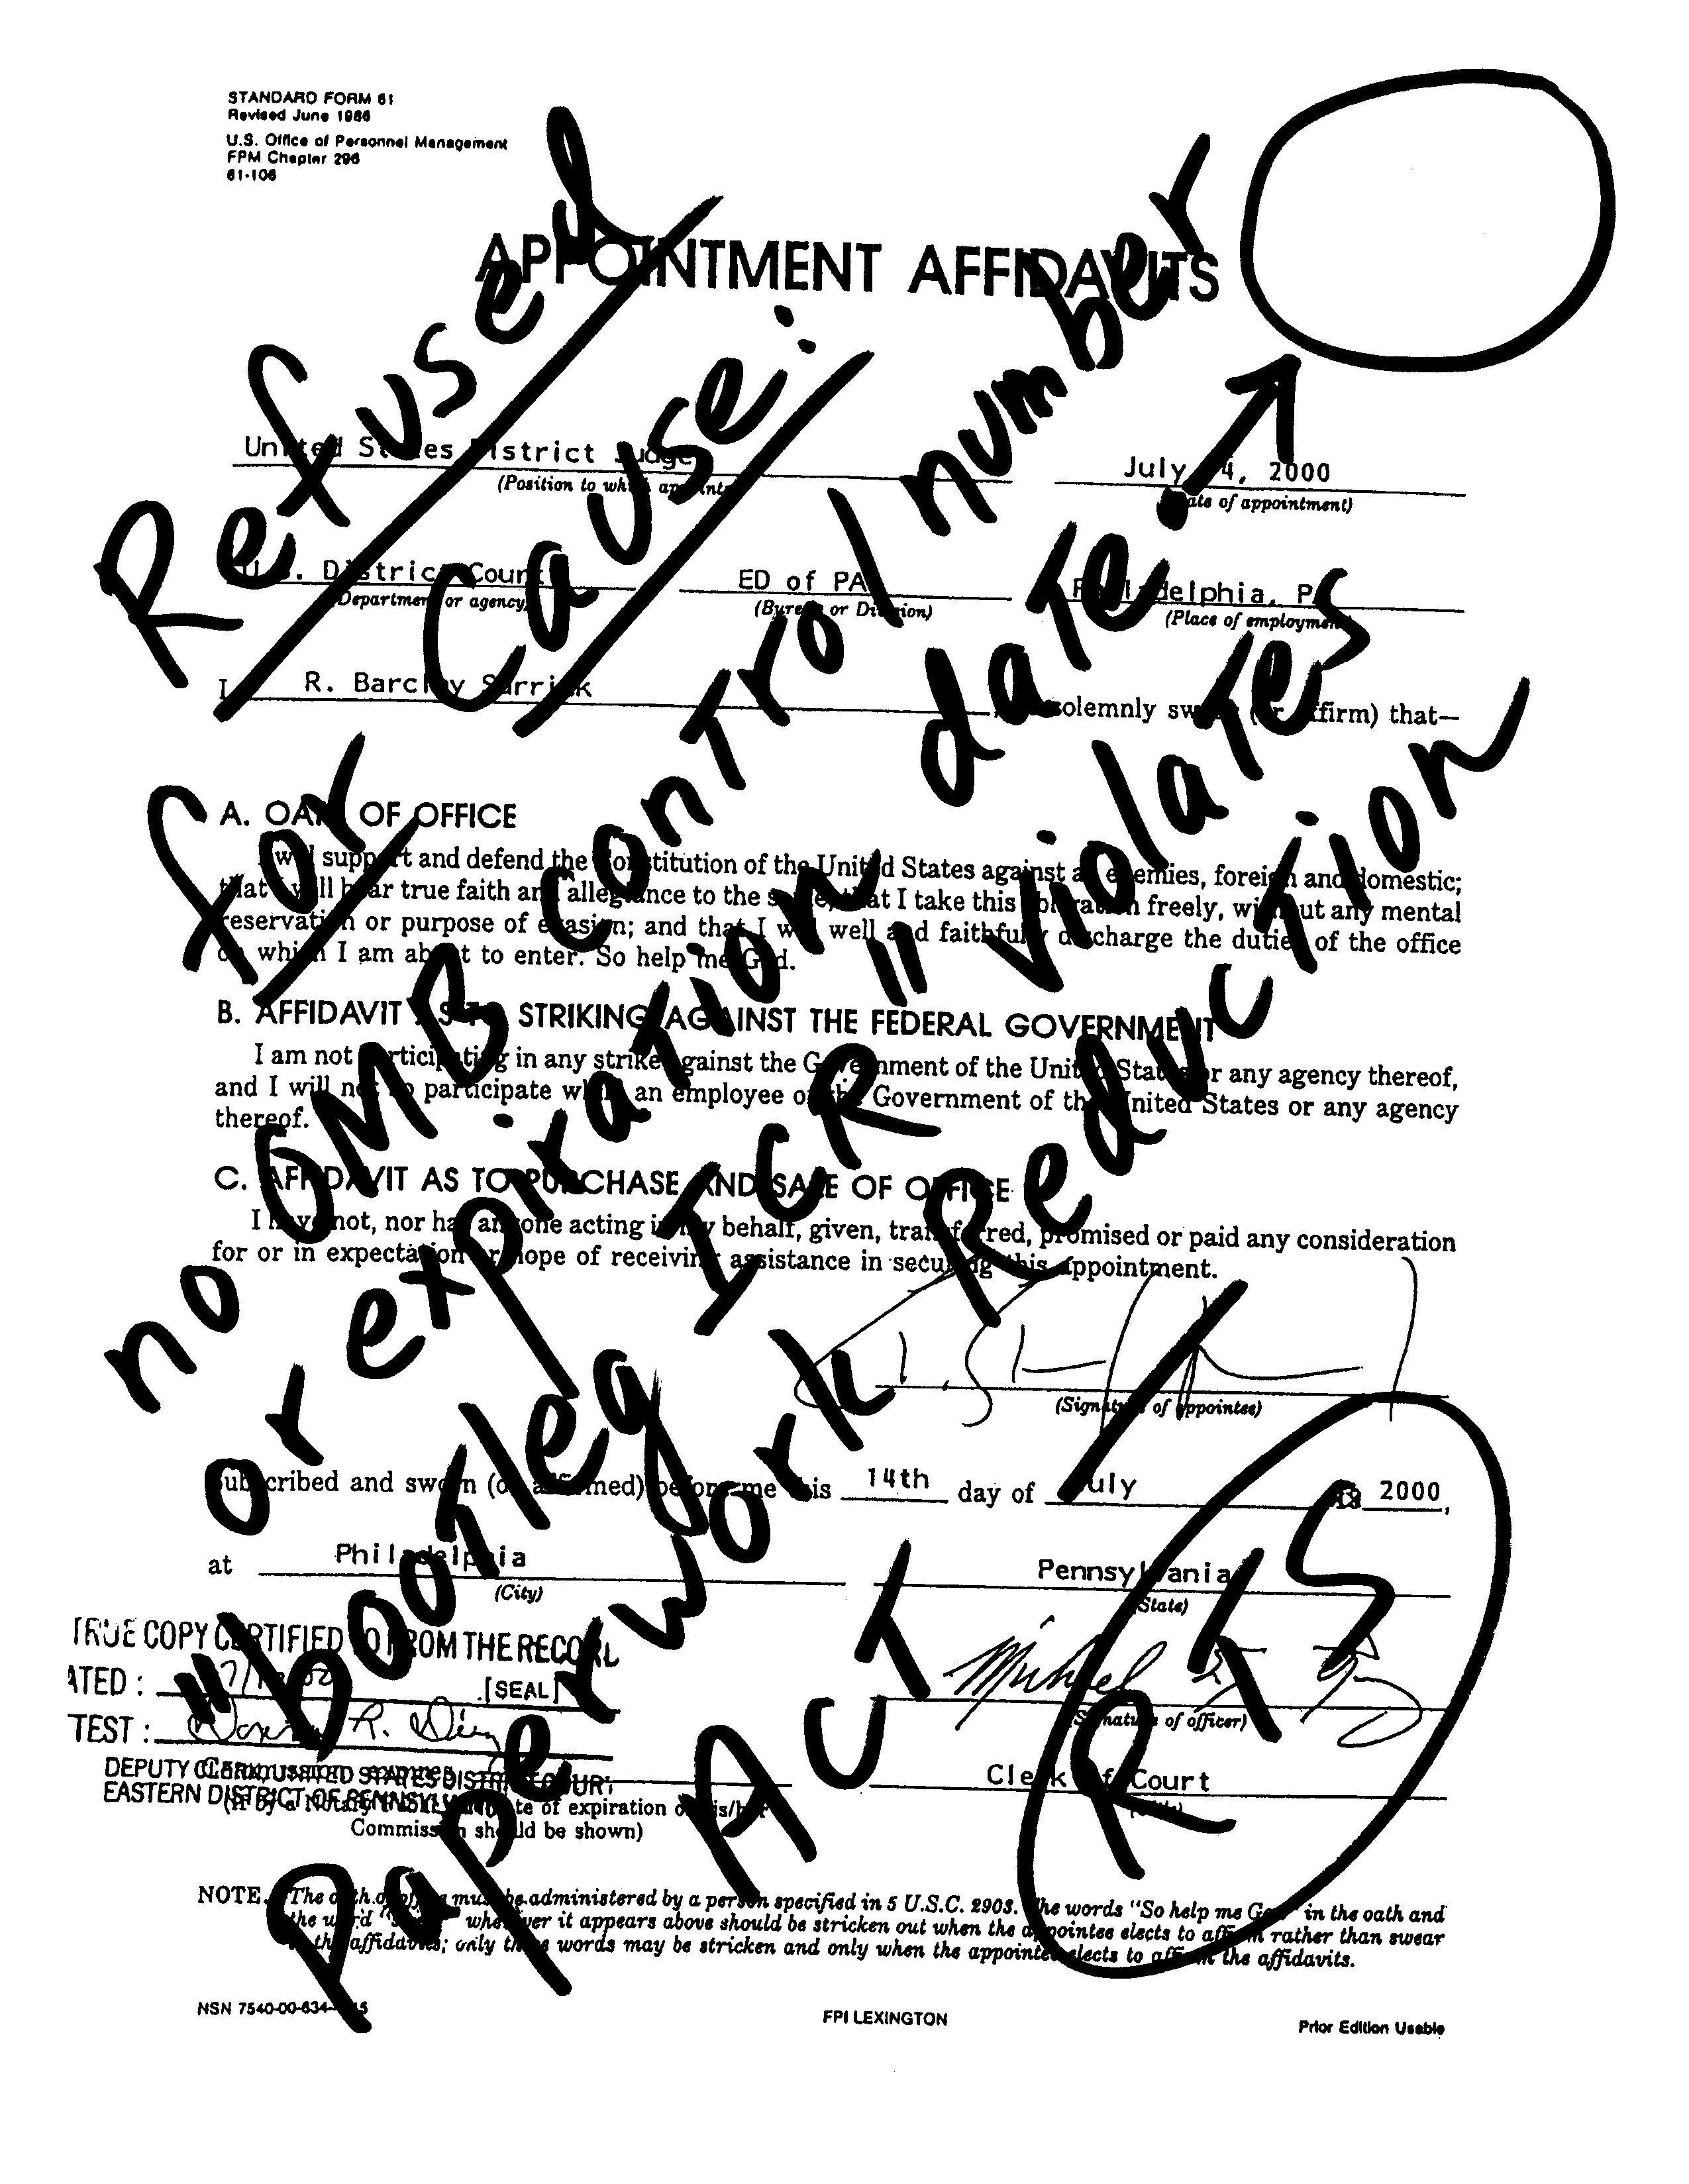 STANDARD FORM 61
Revised June 1986
U.S. Office of Personnel Management
FPM Chapter 296
61-106
APPOINTMENT AFFIDAVITS
United States District Judge
July 14, 2000
(Position to which appointed)
(Date of appointment)
U.S. District Court
ED of PA
Philadelphia, PA
(Department or agency)
(Bureau or Division)
(Place of employment)
I, R. Barclay Surrick, do solemnly swear (or affirm) that—
A. OATH OF OFFICE
I will support and defend the Constitution of the United States against all enemies, foreign and domestic;
that I will bear true faith and allegiance to the same; that I take this obligation freely, without any mental
reservation or purpose of evasion; and that I will well and faithfully discharge the duties of the office
on which I am about to enter. So help me God.
B. AFFIDAVIT AS TO STRIKING AGAINST THE FEDERAL GOVERNMENT
I am not participating in any strike against the Government of the United States or any agency thereof,
and I will not so participate while an employee of the Government of the United States or any agency
thereof.
C. AFFIDAVIT AS TO PURCHASE AND SALE OF OFFICE
I have not, nor has anyone acting in my behalf, given, transferred, promised or paid any consideration
for or in expectation or hope of receiving assistance in securing this appointment.
(Signature of appointee)
Subscribed and sworn (or affirmed) before me this 14th day of July 19 2000,
at Philadelphia
Pennsylvania
(City)
(State)
TRUE COPY CERTIFIED TO FROM THE RECORD
ATED :
[SEAL]
TEST :
(Signature of officer)
DEPUTY CLERK, UNITED STATES DISTRICT COURT
EASTERN DISTRICT OF PENNSYLVANIA
Commission expires
(If by a Notary Public, the date of expiration of his/her
Commission should be shown)
Clerk of Court
(Title)
NOTE. The oath of office must be administered by a person specified in 5 U.S.C. 2903. The words "So help me God" in the oath and
the word "swear" wherever it appears above should be stricken out when the appointee elects to affirm rather than swear
to the affidavits; only these words may be stricken and only when the appointee elects to affirm the affidavits.
NSN 7540-00-634-4015
FPI LEXINGTON
Prior Edition Usable
Refused
for
Cause:
no OMB conTrol number
or expiraTion daTe.
"booTleg ICR" violaTes
Paperwork ReducTion
AcT
RTS